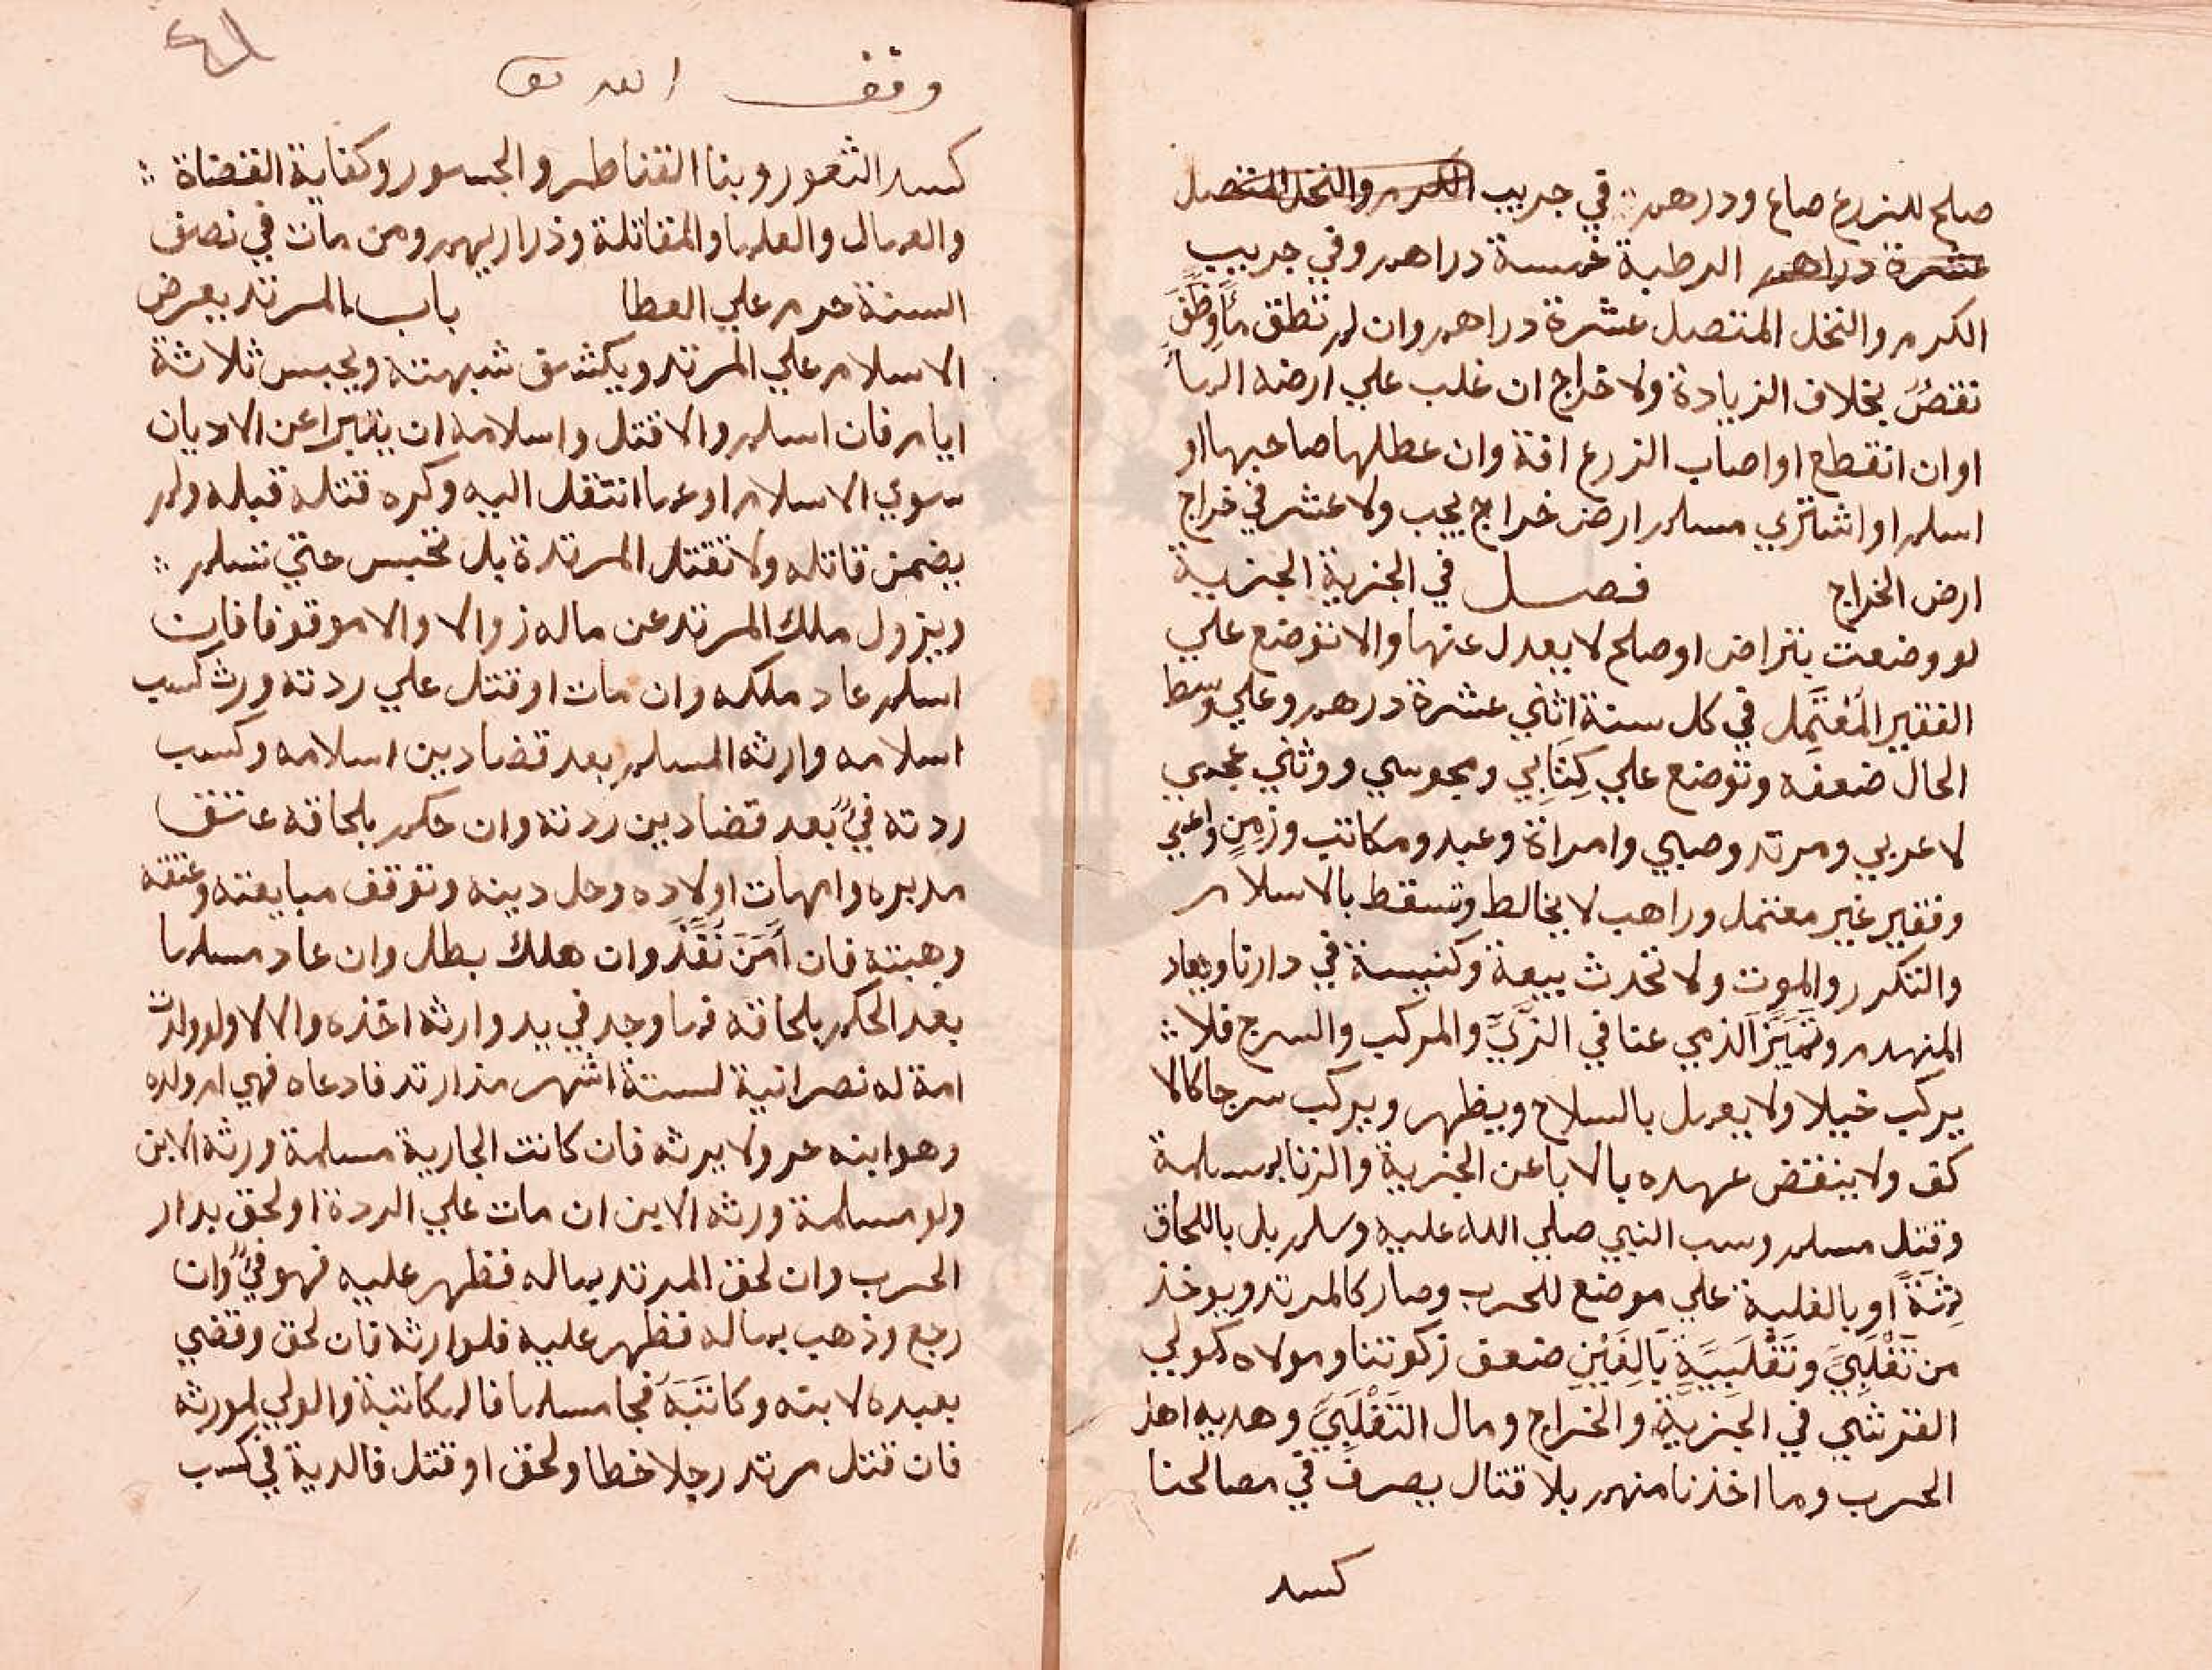 صلح للزرع صاع ودرهم في جريب الكرم والنخل المتصل
عشرة دراهم الرطبة خمسة دراهم وفي جريب
الكرم والنخل المتصل عشرة دراهم وان لم تطق ما وظف
نقص بخلاف الزيادة ولا خراج ان غلب علي ارضه الما
او ان انقطع او اصاب الزرع افة وان عطلها صاحبها او
اسلم او اشتري مسلم ارض خراج يجب ولا عشر في خراج
ارض الخراج فصل في الجزية الجزية
لو وضعت بتراض او صلح لا يعدل عنها والا توضع علي
الفقير المعتمل في كل سنة اثني عشرة درهم وعلي وسط
الحال ضعفه وتوضع علي كتابي ومجوسي ووثني عجمي
لا عربي ومرتد وصبي وامراة وعبد ومكاتب وزمن واعمي
وفقير غير معتمل وراهب لا يخالط وتسقط بالاسلام
والتكرر والموت ولا تحدث بيعة وكنيسة في دارنا ويعاد
المنهدم وتميز الذمي عنا في الزي والمركب والسرج فلا
يركب خيلا ولا يعمل بالسلاح ويظهر ويركب سرجا كالا
كف ولا ينقض عهده بالابا عن الجزية والزنا بمسلمة
وقتل مسلم وسب النبي صلي الله عليه وسلم بل باللحاق
ثمة او بالغلبة علي موضع للحرب وصار كالمرتد ويوخذ
من تغلبي وتغلبية بالغين ضعف زكوتنا ومولاه كمولي
القرشي في الجزية والخراج ومال التغلبي وهديه اهل
الحرب وما اخذنا منهم بلا قتال يصرف في مصالحنا
كسد
وقف الله تع
كسد الثغور وبنا القناطر والجسور وكفاية القضاة
والعمال والعلما والمقاتلة وذراريهم ومن مات في نصف
السنة حرم علي العطا باب المرتد يعرض
الاسلام علي المرتد ويكشف شبهته ويحبس ثلاثة
ايام فان اسلم والا قتل واسلامه ان يتبرا عن الاديان
سوي الاسلام او عما انتقل اليه وكره قتله قبله ولم
يضمن قاتله ولا تقتل المرتدة بل تحبس حتي تسلم
ويزول ملك المرتد عن ماله زوالا والا موقوفا فان
اسلم عاد ملكه وان مات او قتل علي ردته ورث كسب
اسلامه وارثه المسلم بعد قضا دين اسلامه وكسب
ردته في بعد قضا دين ردته وان حكم بلحاقه عتق
مدبره وامهات اولاده وحل دينه وتوقف مبايعته وعتقه
وهبته فان أمن نفذ وان هلك بطل وان عاد مسلما
بعد الحكم بلحاقه فما وجد في يد وارثه اخذه والا لا ولو ولدت
امة له نصرانية لستة اشهر منذ ارتد فادعاه فهي ام ولده
وهو ابنه حر ولا يرثه فان كانت الجارية مسلمة ورثه الابن
ولو مسلمة ورثه الابن ان مات علي الردة او لحق بدار
الحرب وان لحق المرتد بماله فظهر عليه فهو في وان
رجع وذهب بماله فظهر عليه فلوارثه فان لحق وقضي
بعبده لابنه وكاتبه فجا مسلما فالمكاتبة والولي لمورثه
فان قتل مرتد رجلا خطا ولحق او قتل فالدية في كسب